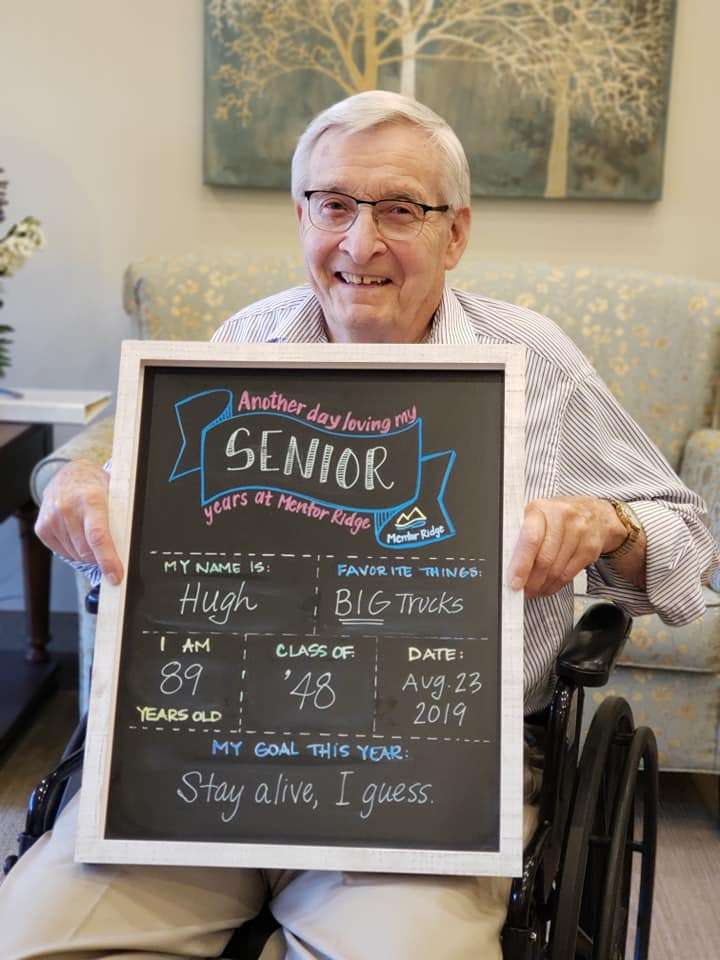 Another day loving my
SENIOR
years at Mentor Ridge
Mentor Ridge
MY NAME IS:
Hugh
FAVORITE THINGS:
BIG Trucks
I AM
89
YEARS OLD
CLASS OF:
'48
DATE:
Aug. 23
2019
MY GOAL THIS YEAR:
Stay alive, I guess.